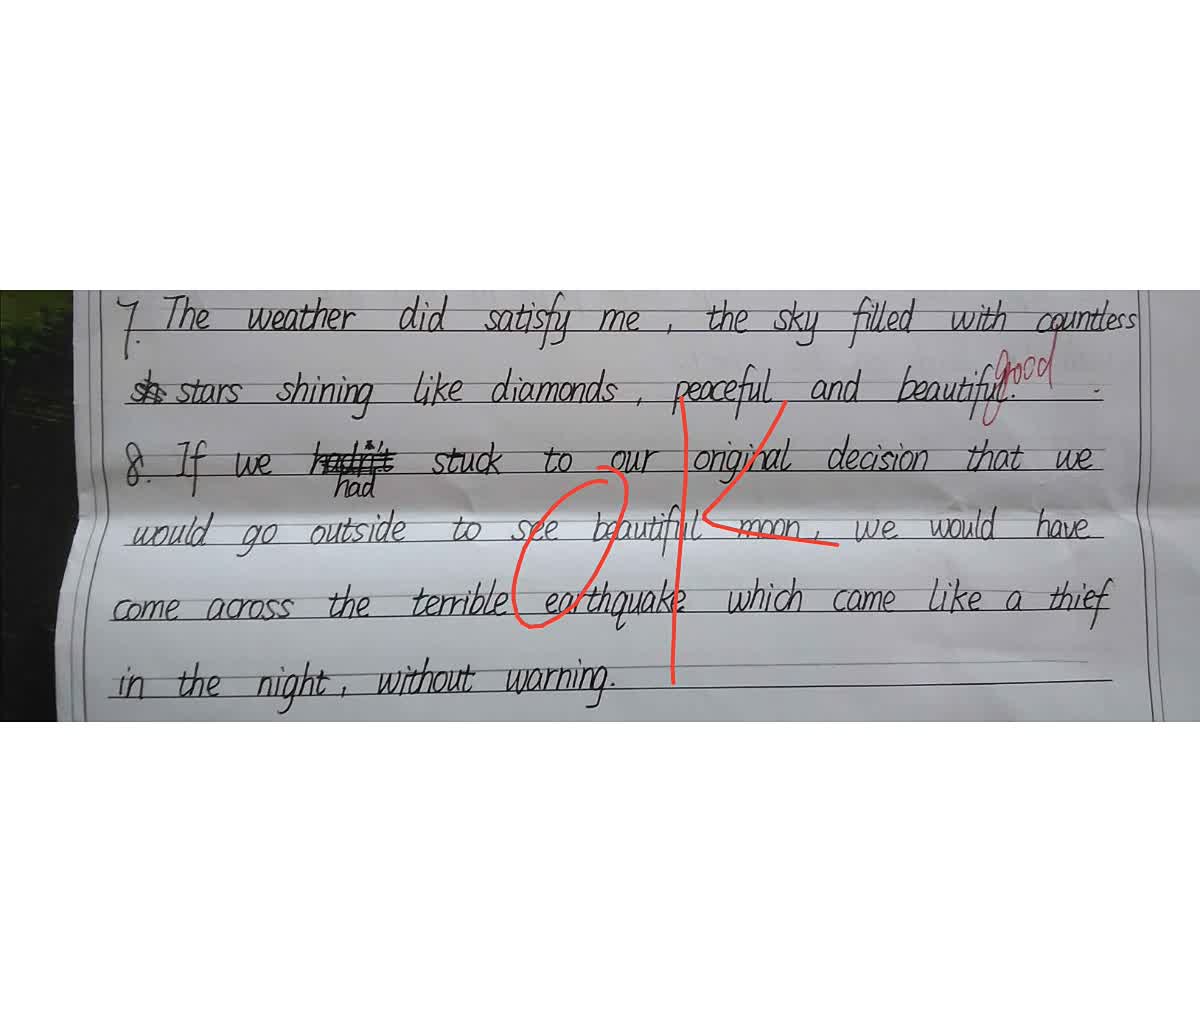 7. The weather did satisfy me, the sky filled with countless
stars shining like diamonds, peaceful and beautiful.
good
8. If we had stuck to our original decision that we
would go outside to see beautiful moon, we would have
come across the terrible earthquake which came like a thief
in the night, without warning.
OK